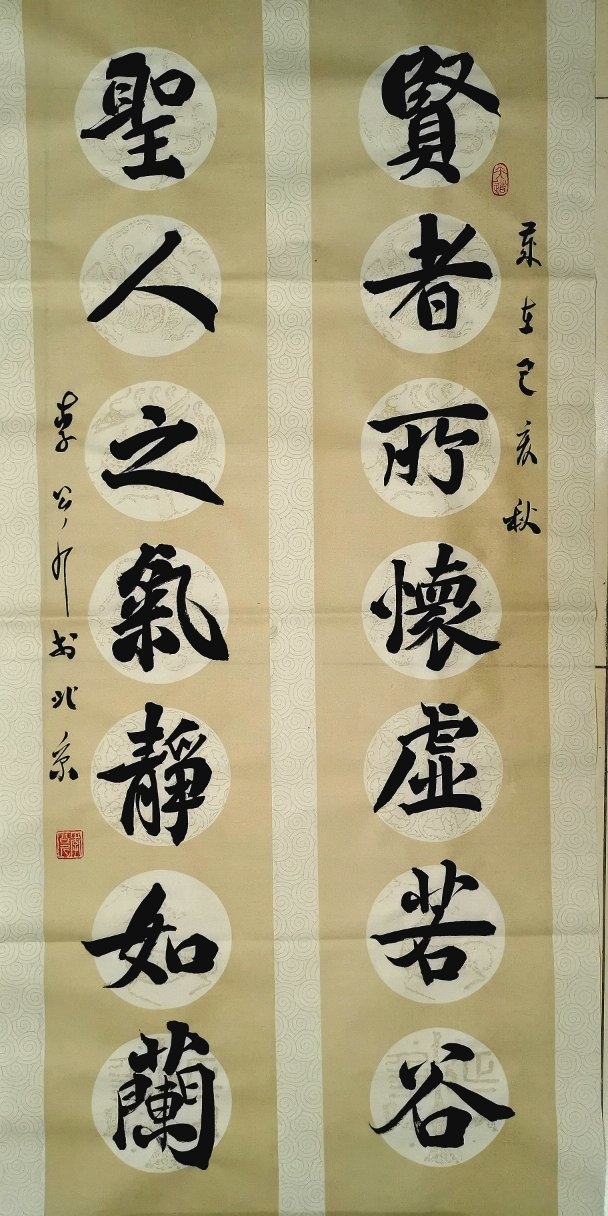 歲在己亥秋
賢者所懷虛若谷
聖人之氣靜如蘭
李公外书北京